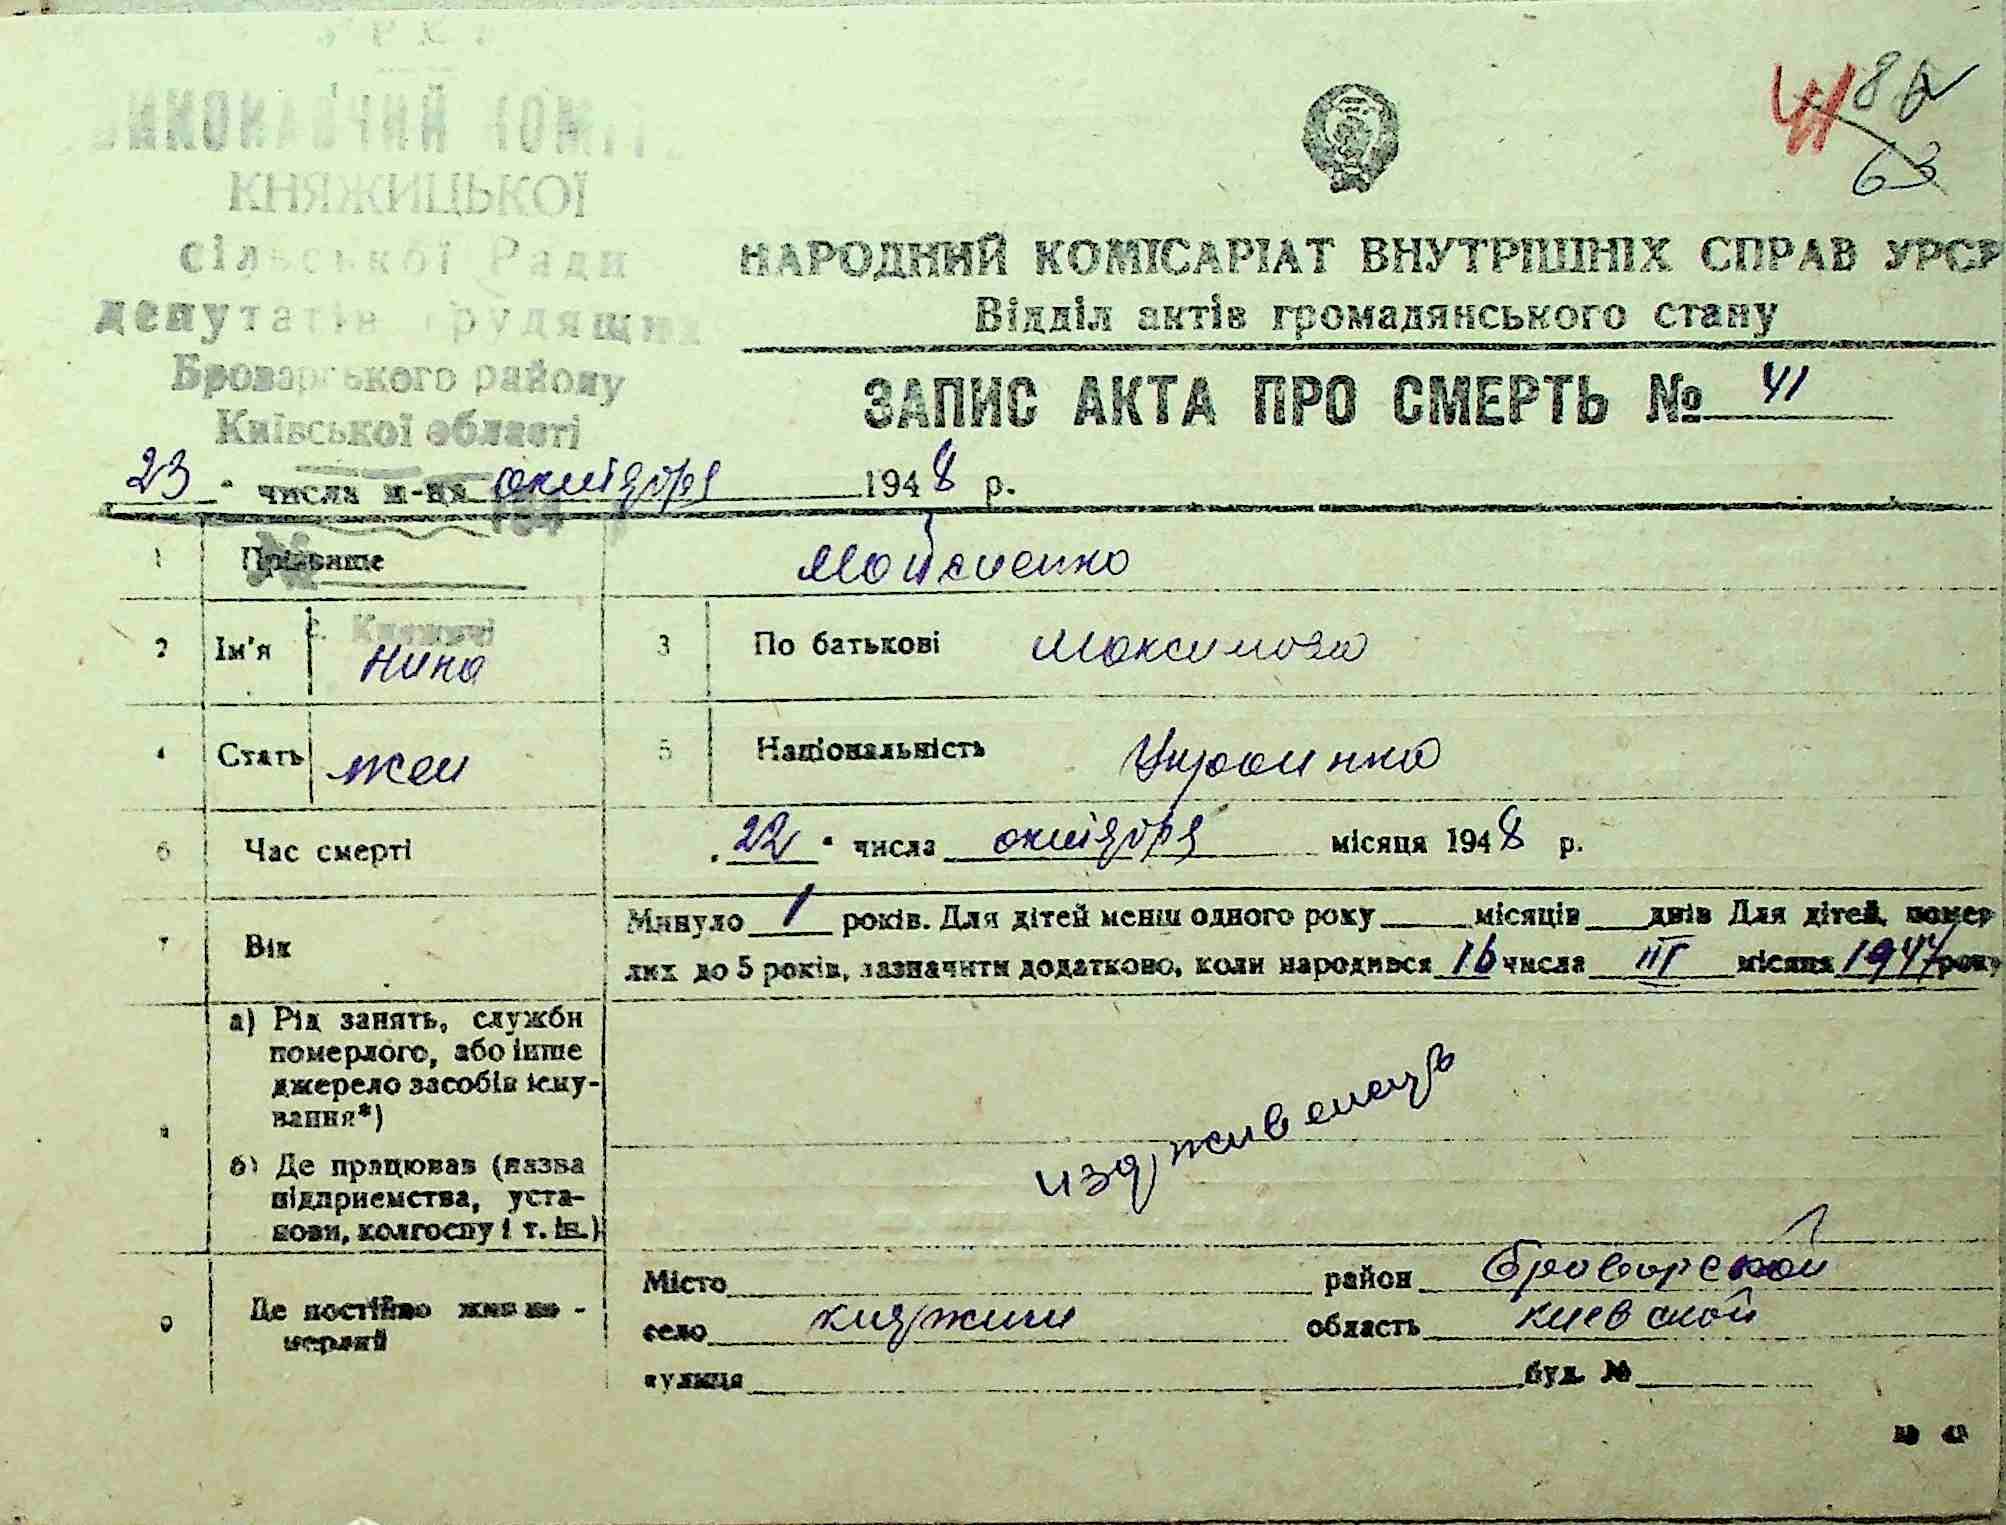 УРСР
ВИКОНАВЧИЙ КОМІТЕТ
КНЯЖИЦЬКОЇ
сільської Ради
депутатів трудящих
Броварського району
Київської області
с. Княжичі
41
82
63
НАРОДНИЙ КОМІСАРІАТ ВНУТРІШНІХ СПРАВ УРСР
Відділ актів громадянського стану
ЗАПИС АКТА ПРО СМЕРТЬ № 41
23 " числа м-ця октября 1948 р.
1 Прізвище Мойсиенко
2 Ім'я Нина 3 По батькові Максимова
4 Стать жен 5 Національність Украинка
6 Час смерті "22" числа октября місяця 1948 р.
7 Вік Минуло 1 років. Для дітей менш одного року ___ місяців ___ днів Для дітей, помер-
лих до 5 років, зазначити додатково, коли народився 16 числа III місяця 1947 року
8 а) Рід занять, служби
померлого, або інше
джерело засобів існу-
вання*)
иждивенець
б) Де працював (назва
підприємства, уста-
нови, колгоспу і т. ін.)
9 Де постійно жив по-
мерлий
Місто район Броварской
село княжичи область киевской
вулиця буд. №